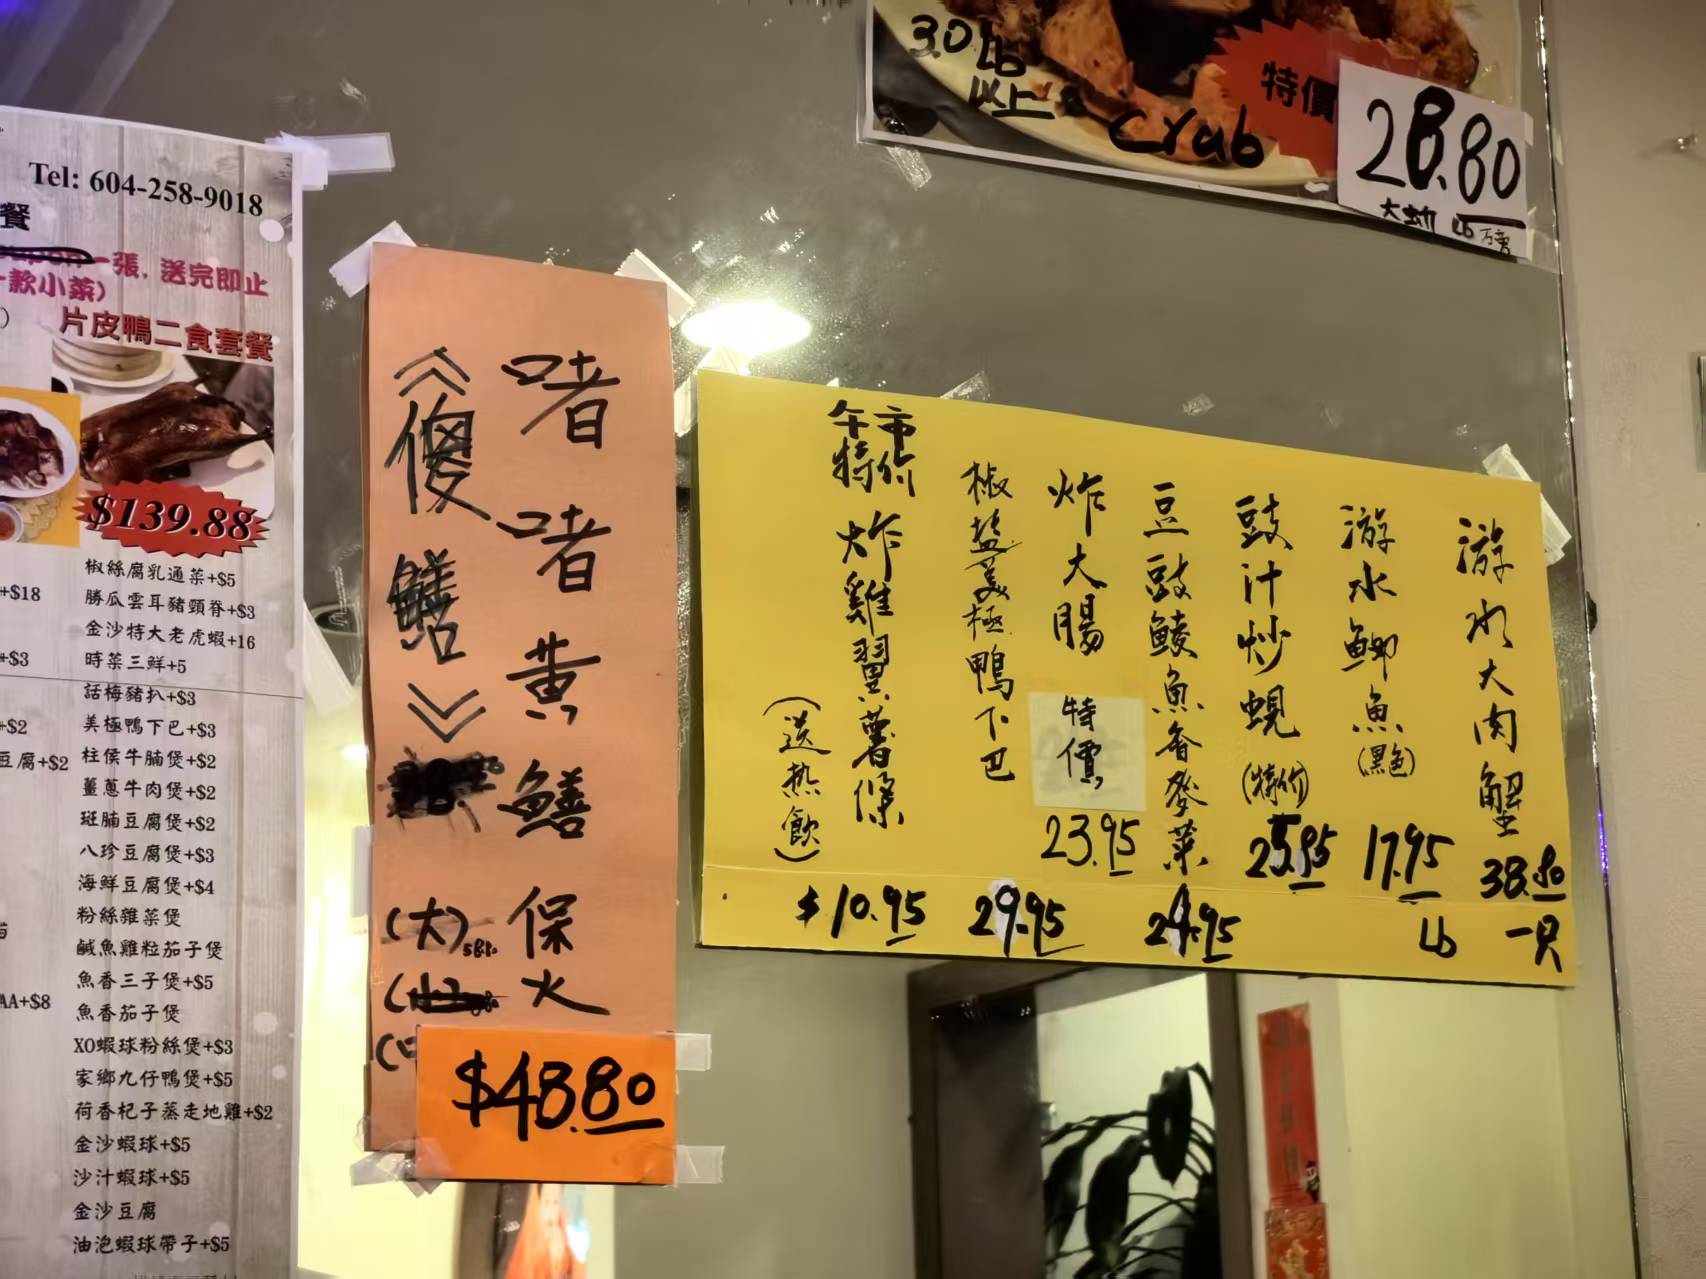 Tel: 604-258-9018
餐
一張, 送完即止
款小菜)
片皮鴨二食套餐
$139.88
+$18
+$3
+$2
豆腐+$2
AA+$8
椒絲腐乳通菜+$5
勝瓜雲耳豬頸脊+$3
金沙特大老虎蝦+16
時菜三鮮+5
話梅豬扒+$3
美極鴨下巴+$3
柱侯牛腩煲+$2
薑蔥牛肉煲+$2
斑腩豆腐煲+$2
八珍豆腐煲+$3
海鮮豆腐煲+$4
粉絲雜菜煲
鹹魚雞粒茄子煲
魚香三子煲+$5
魚香茄子煲
XO蝦球粉絲煲+$3
家鄉九仔鴨煲+$5
荷香杞子蒸走地雞+$2
金沙蝦球+$5
沙汁蝦球+$5
金沙豆腐
油泡蝦球帶子+$5
啫啫黃鱔保火
《傻鱔》
(大)
$48.80
3.0 Lb
以上
crab
特價
28.80
Lb
游水大肉蟹 38.80 一只
游水鯽魚(黑色) 17.95 Lb
豉汁炒蜆(特价) 25.95
豆豉鯪魚香麥菜 24.95
炸大腸 特價 23.95
椒盐美極鴨下巴 29.95
午市特价 炸雞翼薯條 (送热飲) $10.95